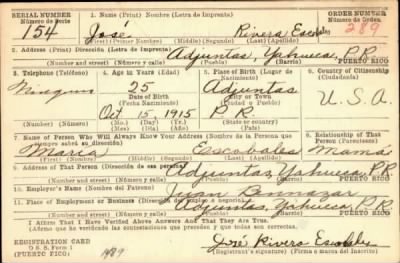 SERIAL NUMBER
Número de Serie
154
1. Name (Print) Nombre (Letra de Imprenta)
José Rivera Escobales
(First) Primer Nombre (Middle) (Segundo) (Last) (Apellido)
ORDER NUMBER
Número de Orden
289
2. Address (Print) Dirección (Letra de Imprenta)
Adjuntas, Yahueca, P.R.
PUERTO RICO
3. Telephone (Teléfono)
Ninguno
4. Age in Years (Edad)
25
Date of Birth
(Fecha Nacimiento)
Oct 15, 1915
(Mo.) (Day) (Yr.)
(Mes) (Día) (Año)
5. Place of Birth (Lugar de Nacimiento)
Adjuntas
City or Town
(Ciudad o Pueblo)
P R
State or country
(Estado o país)
6. Country of Citizenship
(Ciudadanía)
U.S.A.
7. Name of Person Who Will Always Know Your Address (Nombre de la Persona que siempre sabrá su dirección)
María Escobales
(First) (Last) (Apellido)
8. Relationship of That Person
Mamá
9. Address of That Person (Dirección de esa persona)
Adjuntas, Yahueca P.R.
PUERTO RICO
10. Employer's Name (Nombre del Patrono)
Juan
11. Place of Employment or Business
Adjuntas, Yahueca, P.R.
PUERTO RICO
I Affirm That I Have Verified Above Answers and That They Are True.
Afirmo que he verificado las contestaciones que preceden y que son ciertas.
REGISTRATION CARD
D. S. S. Form 1
(PUERTO RICO)
José Rivera Escobales
(Registrant's signature) (Firma o marca del Inscrito)